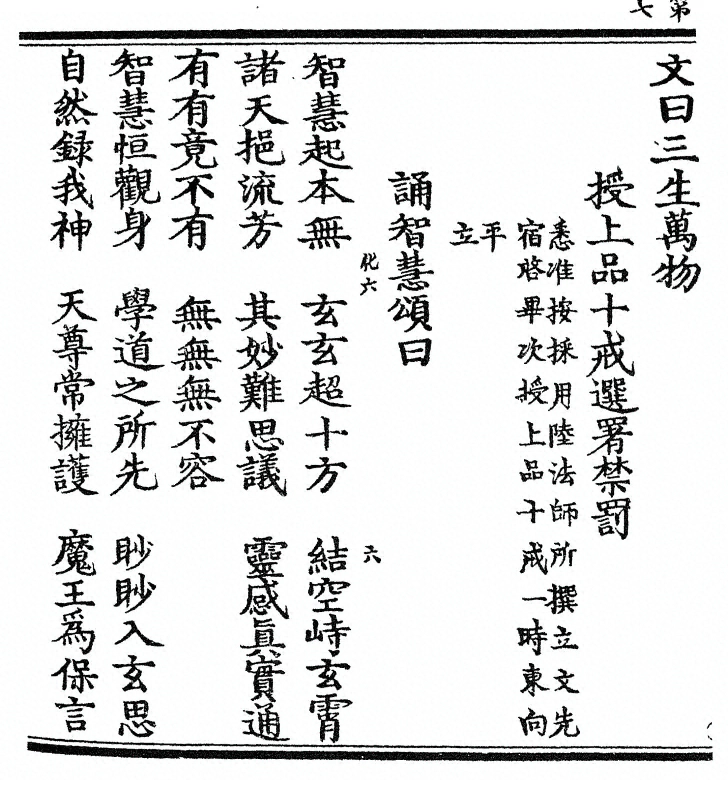 第
七
文曰三生萬物
授上品十戒選署禁罰
悉准按採用陸法師所撰立文先
宿啓畢次授上品十戒一時東向
平
立
誦智慧頌曰
化六
六
智慧起本無 玄玄超十方 結空峙玄霄
諸天挹流芳 其妙難思議 靈感真實通
有有竟不有 無無無不容
智慧恒觀身 學道之所先 眇眇入玄思
自然録我神 天尊常擁護 魔王為保言